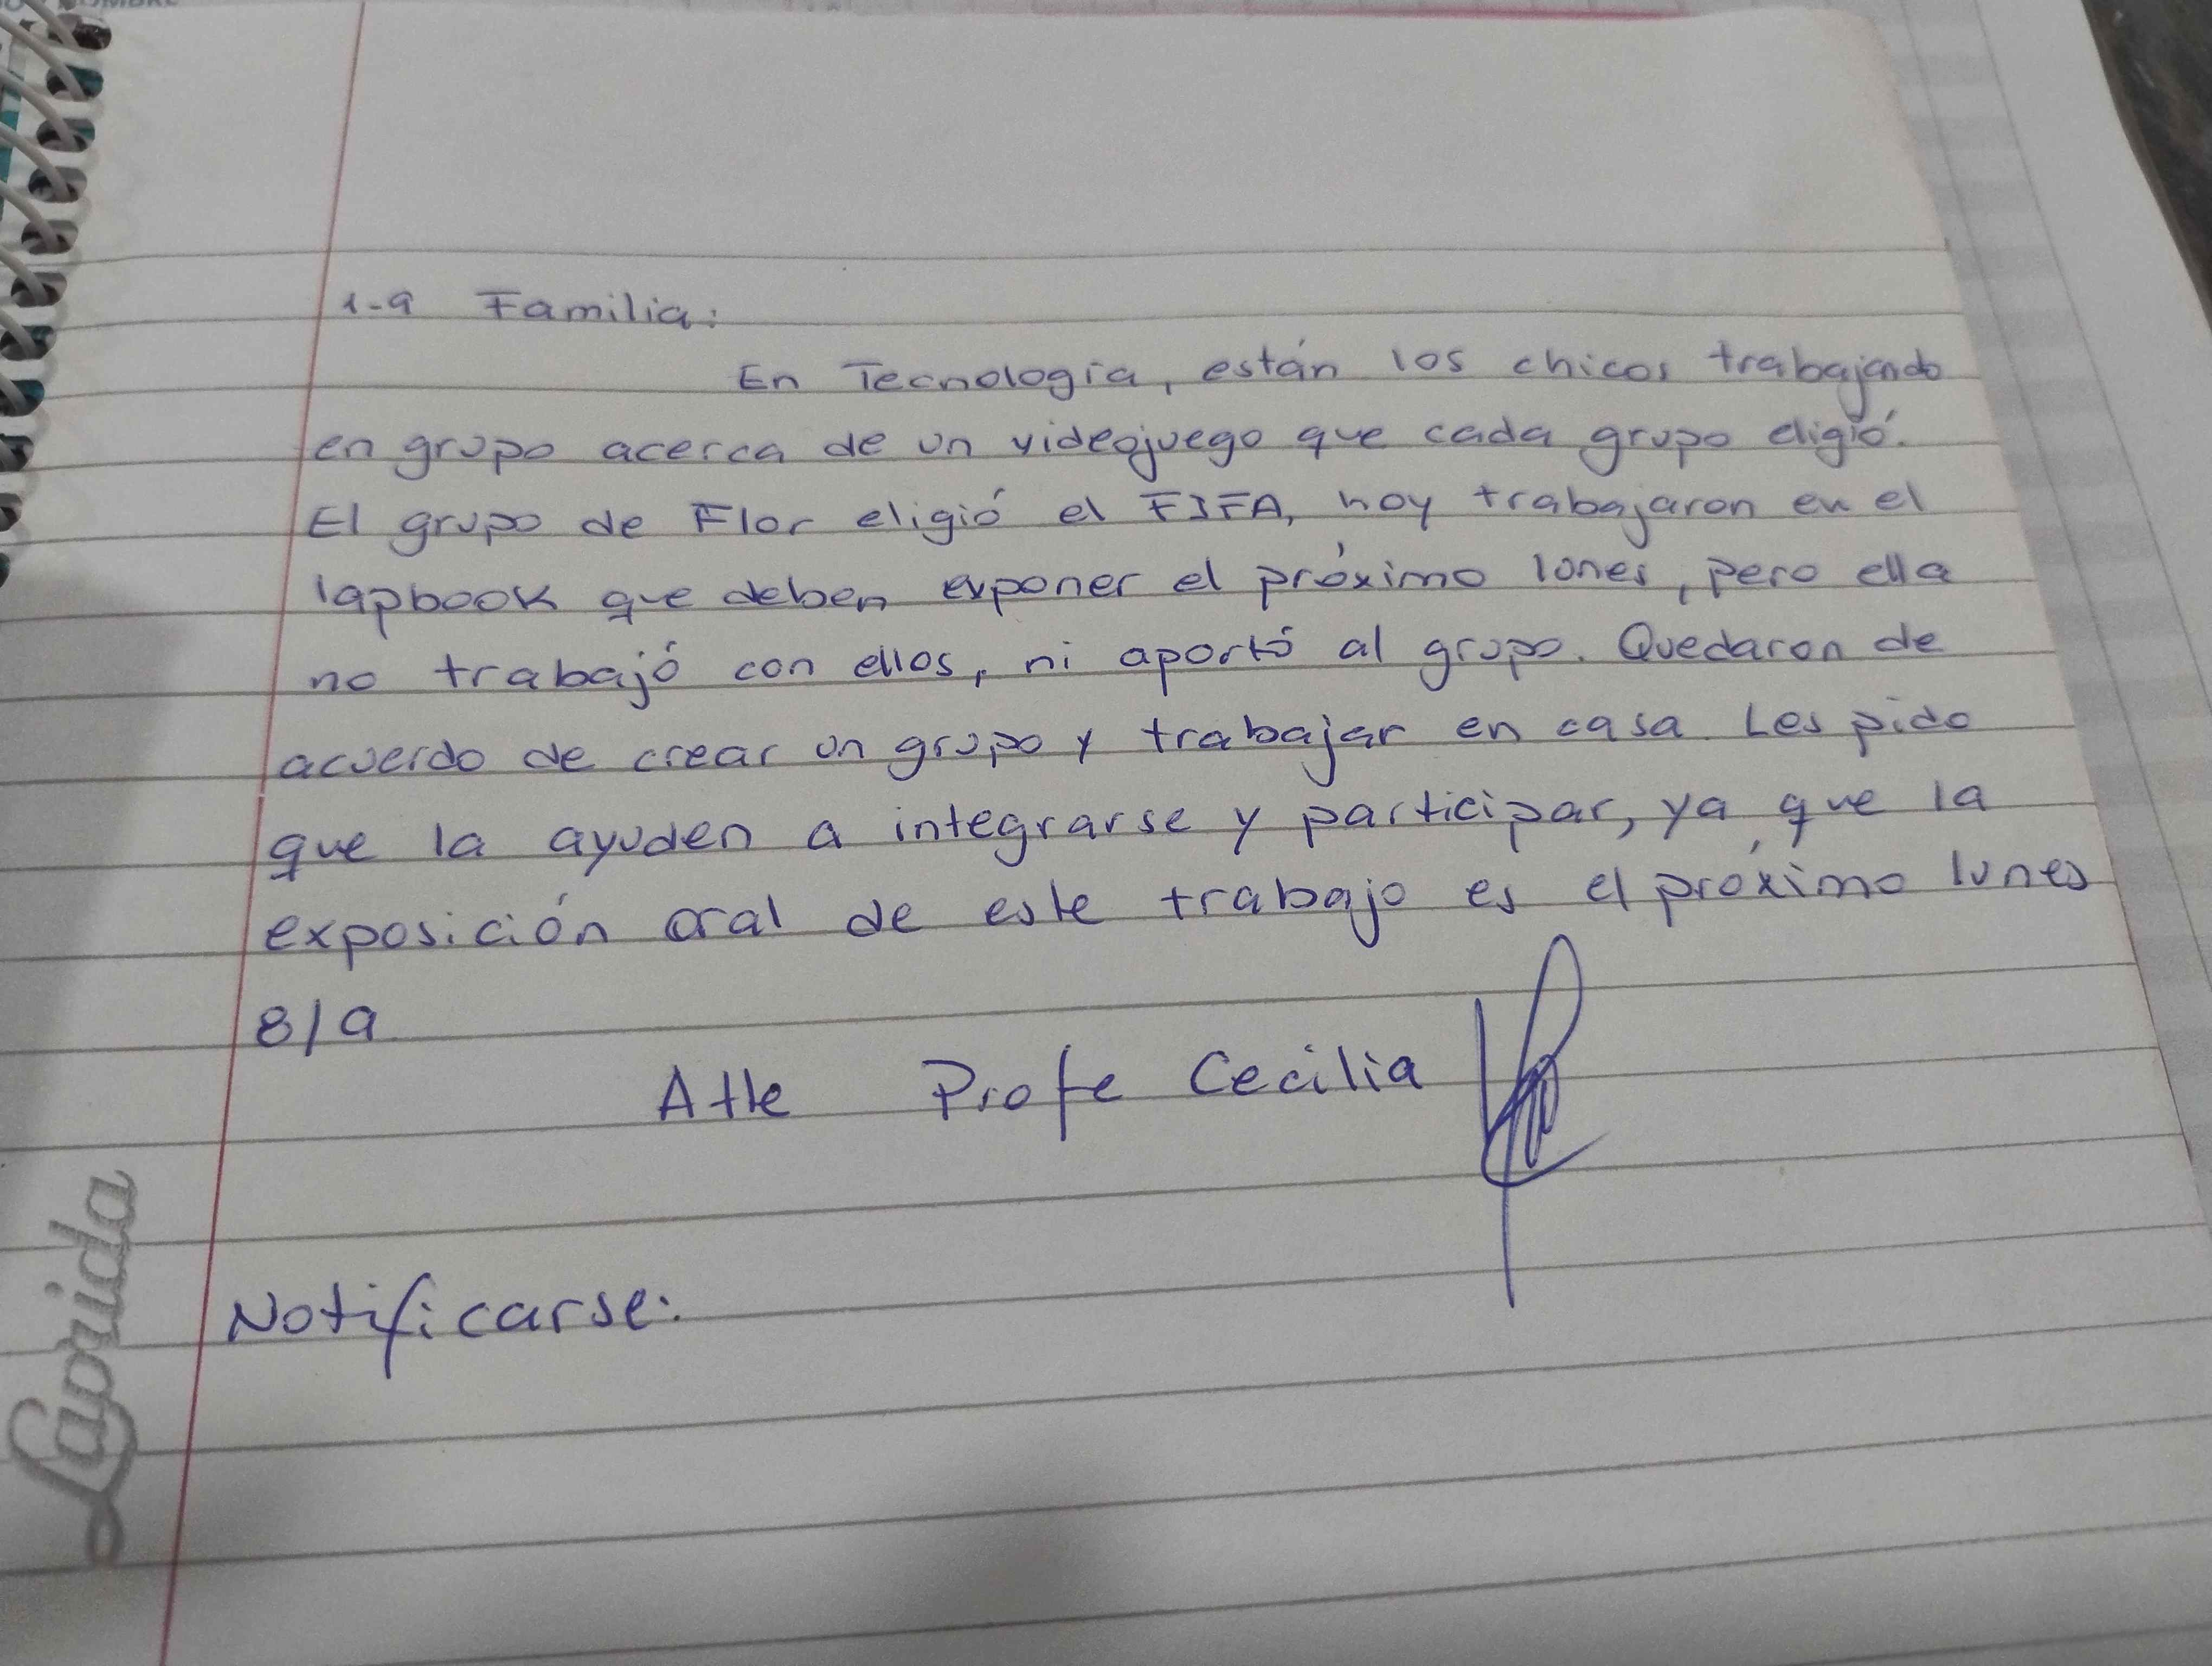 1-9 Familia:
En Tecnología, están los chicos trabajando
en grupo acerca de un videojuego que cada grupo eligió.
El grupo de Flor eligió el FIFA, hoy trabajaron en el
lapbook que deben exponer el próximo lunes, pero ella
no trabajó con ellos, ni aportó al grupo. Quedaron de
acuerdo de crear un grupo y trabajar en casa. Les pido
que la ayuden a integrarse y participar, ya que la
exposición oral de este trabajo es el próximo lunes
8/9
Atte Profe Cecilia
Notificarse:
Laprida